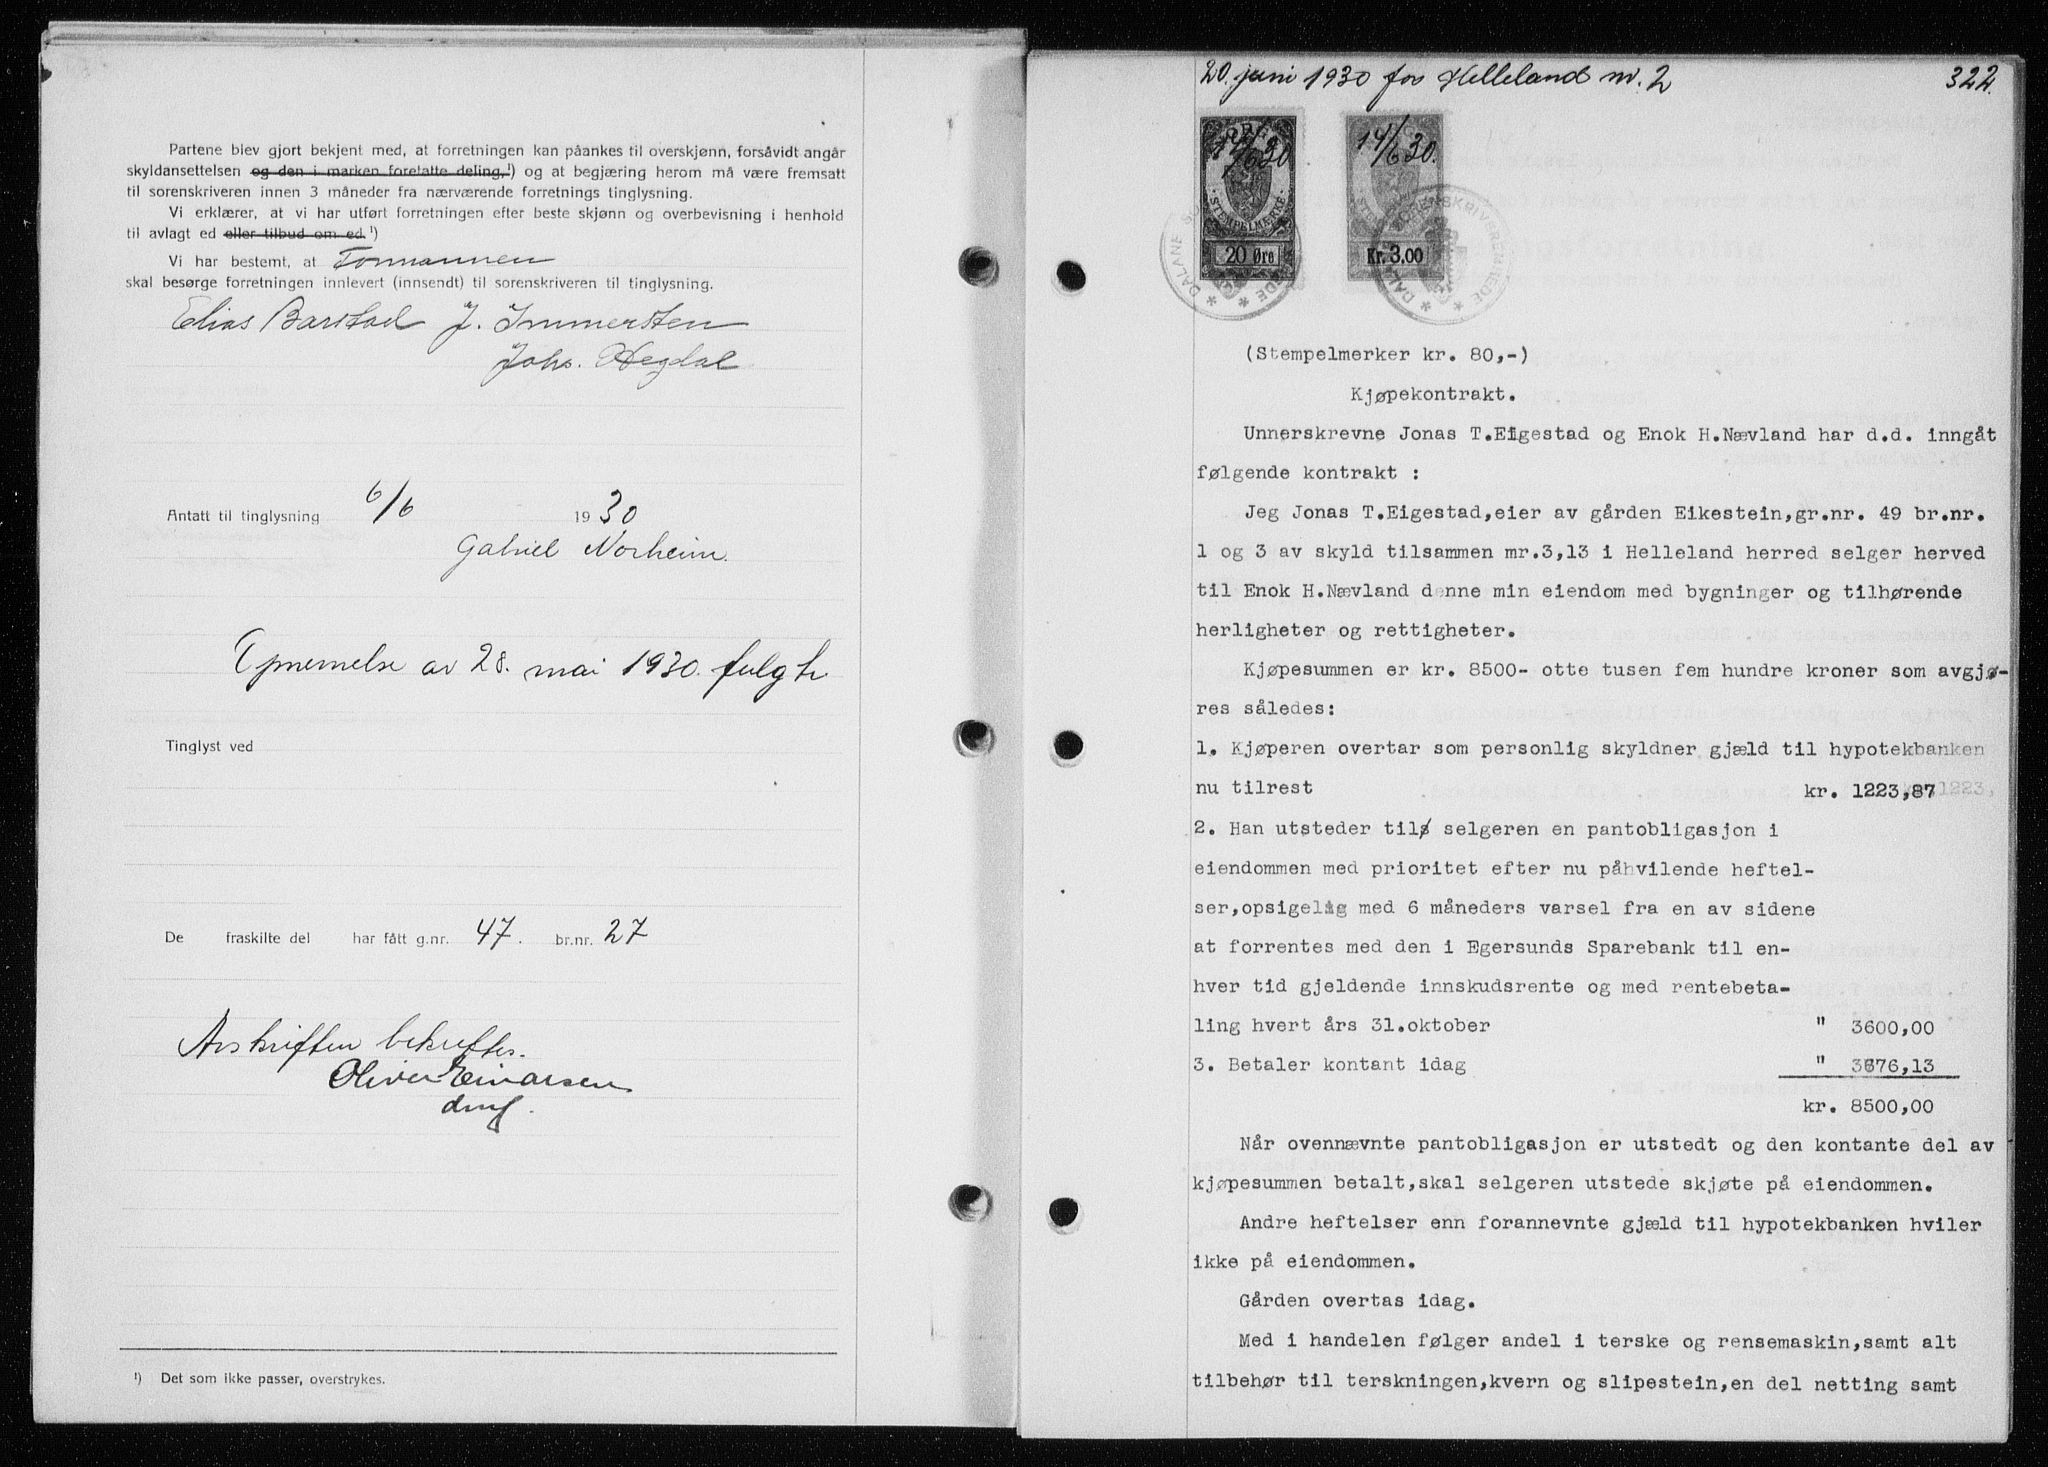 Partene blev gjort bekjent med, at forretningen kan påankes til overskjønn, forsåvidt angår
skyldansettelsen og den i marken foretatte deling,¹) og at begjæring herom må være fremsatt
til sorenskriveren innen 3 måneder fra nærværende forretnings tinglysning.
Vi erklærer, at vi har utført forretningen efter beste skjønn og overbevisning i henhold
til avlagt ed eller tilbud om ed.¹)
Vi har bestemt, at Formannen
skal besørge forretningen innlevert (innsendt) til sorenskriveren til tinglysning.
Elias Barstad J. Immersten
Johs. Hegdal
Antatt til tinglysning 6/6 1930
Gabriel Norheim.
Opnemnelse av 28. mai 1930. fulgte
Tinglyst ved
De fraskilte del har fått g.nr. 47. br.nr. 27
Avskriften bekreftes.
Oliver Eivarsen
¹) Det som ikke passer, overstrykes.
20. juni 1930 for Helleland nr. 2 322.
14/6 30 14/6 30.
STEMPELMÆRKE
20 Øre Kr. 3,00
(Stempelmerker kr. 80,-)
Kjøpekontrakt.
Unnerskrevne Jonas T.Eigestad og Enok H.Nævland har d.d. inngåt
følgende kontrakt :
Jeg Jonas T.Eigestad,eier av gården Eikestein,gr.nr. 49 br.nr.
1 og 3 av skyld tilsammen mr.3,13 i Helleland herred selger herved
til Enok H.Nævland denne min eiendom med bygninger og tilhørende
herligheter og rettigheter.
Kjøpesummen er kr. 8500- otte tusen fem hundre kroner som avgjø-
res således:
1. Kjøperen overtar som personlig skyldner gjæld til hypotekbanken
nu tilrest kr. 1223,87
2. Han utsteder til selgeren en pantobligasjon i
eiendommen med prioritet efter nu påhvilende heftel-
ser,opsigelig med 6 måneders varsel fra en av sidene
at forrentes med den i Egersunds Sparebank til en-
hver tid gjeldende innskudsrente og med rentebeta-
ling hvert års 31.oktober " 3600,00
3. Betaler kontant idag " 3676,13
kr. 8500,00
Når ovennævnte pantobligasjon er utstedt og den kontante del av
kjøpesummen betalt,skal selgeren utstede skjøte på eiendommen.
Andre heftelser enn forannevnte gjæld til hypotekbanken hviler
ikke på eiendommen.
Gården overtas idag.
Med i handelen følger andel i terske og rensemaskin,samt alt
tilbehør til terskningen,kvern og slipestein,en del netting samt